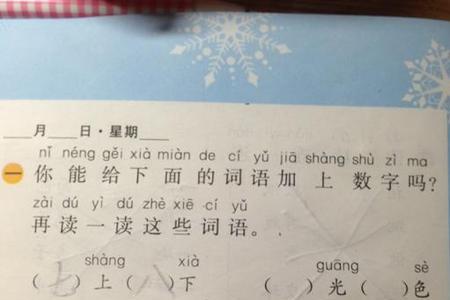 ____月____日·星期____
nǐ néng gěi xià miàn de cí yǔ jiā shàng shù zì ma
一 你能给下面的词语加上数字吗?
zài dú yì dú zhè xiē cí yǔ
再读一读这些词语。
shàng xià guāng sè
(七)上(八)下 ( )光( )色